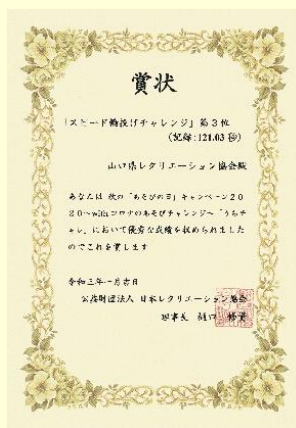 賞状
「スピード輪投げチャレンジ」第3位
(記録:121.03秒)
山口県レクリエーション協会殿
あなたは 秋の「あそびの日」キャンペーン20
20～withコロナのあそびチャレンジ～「うちチ
ャレ」において優秀な成績を収められました
のでこれを賞します
令和三年一月吉日
公益財団法人 日本レクリエーション協会
理事長 樋口 修資